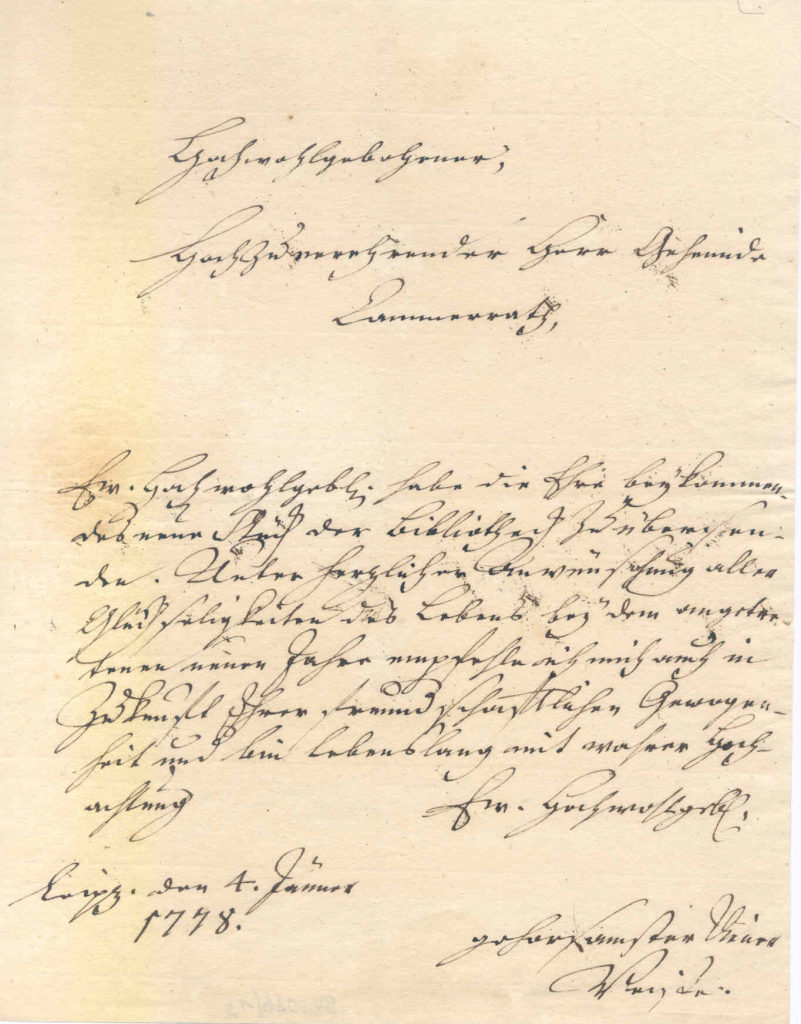 Hochwohlgebohrner,
Hochzuverehrender Herr Geheimde
Cammerrath,
Ew. Hochwohlgebl. habe die Ehre beykommen-
des neue Stück der Bibliotheck zu übersen-
den. Unter herzlicher Anwünschung aller
Glückseligkeiten des Lebens bey dem angetre-
tenen neuen Jahre empfehle ich mich auch in
Zukunft Ihrer freundschaftlichen Gewogen-
heit und bin lebenslang mit wahrer Hoch-
achtung
Ew. Hochwohlgebl.
Leipz. den 4. Jänner
1778.
gehorsamster Diener
Weiße.